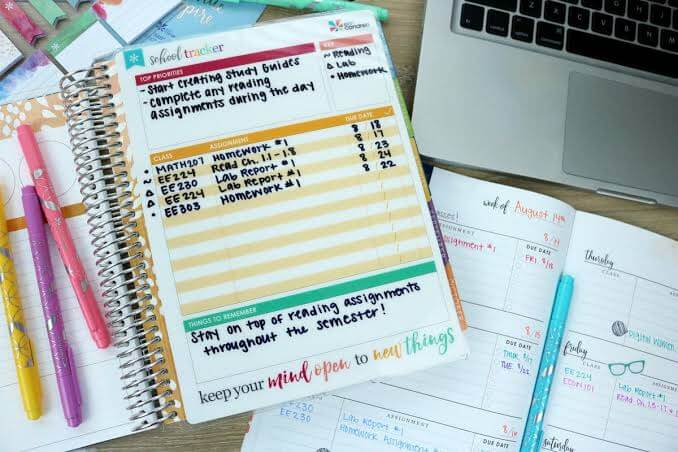 inspire
erin condren
school tracker
TOP PRIORITIES
- Start Creating Study Guides
- Complete any reading
assignments during the day
KEY
~ Reading
Δ Lab
• Homework
CLASS ASSIGNMENT DUE DATE ✓
• MATH207 Homework #1 8/18
~ EE224 Read Ch. 1.1-1.8 8/17
Δ EE230 Lab Report #1 8/23
Δ EE224 Lab Report #1 8/24
• EE303 Homework #1 8/22
THINGS TO REMEMBER
Stay on top of reading assignments
throughout the semester!
keep your mind open to new things
week of August 14th
asses!
ASSIGNMENT DUE DATE
8/14
assignment #1 FRI. 8/18
DUE DATE
8/15
THUR. 8/17
TUE. 8/22
DUE DATE
8/16
EE230
EE303
ASSIGNMENT
Lab Report #1
Homework Assignment
thursday
CLASS
Digital Women
friday
CLASS
EE224
ECON101
Lab Report #1
Read Ch.
saturday
command
option